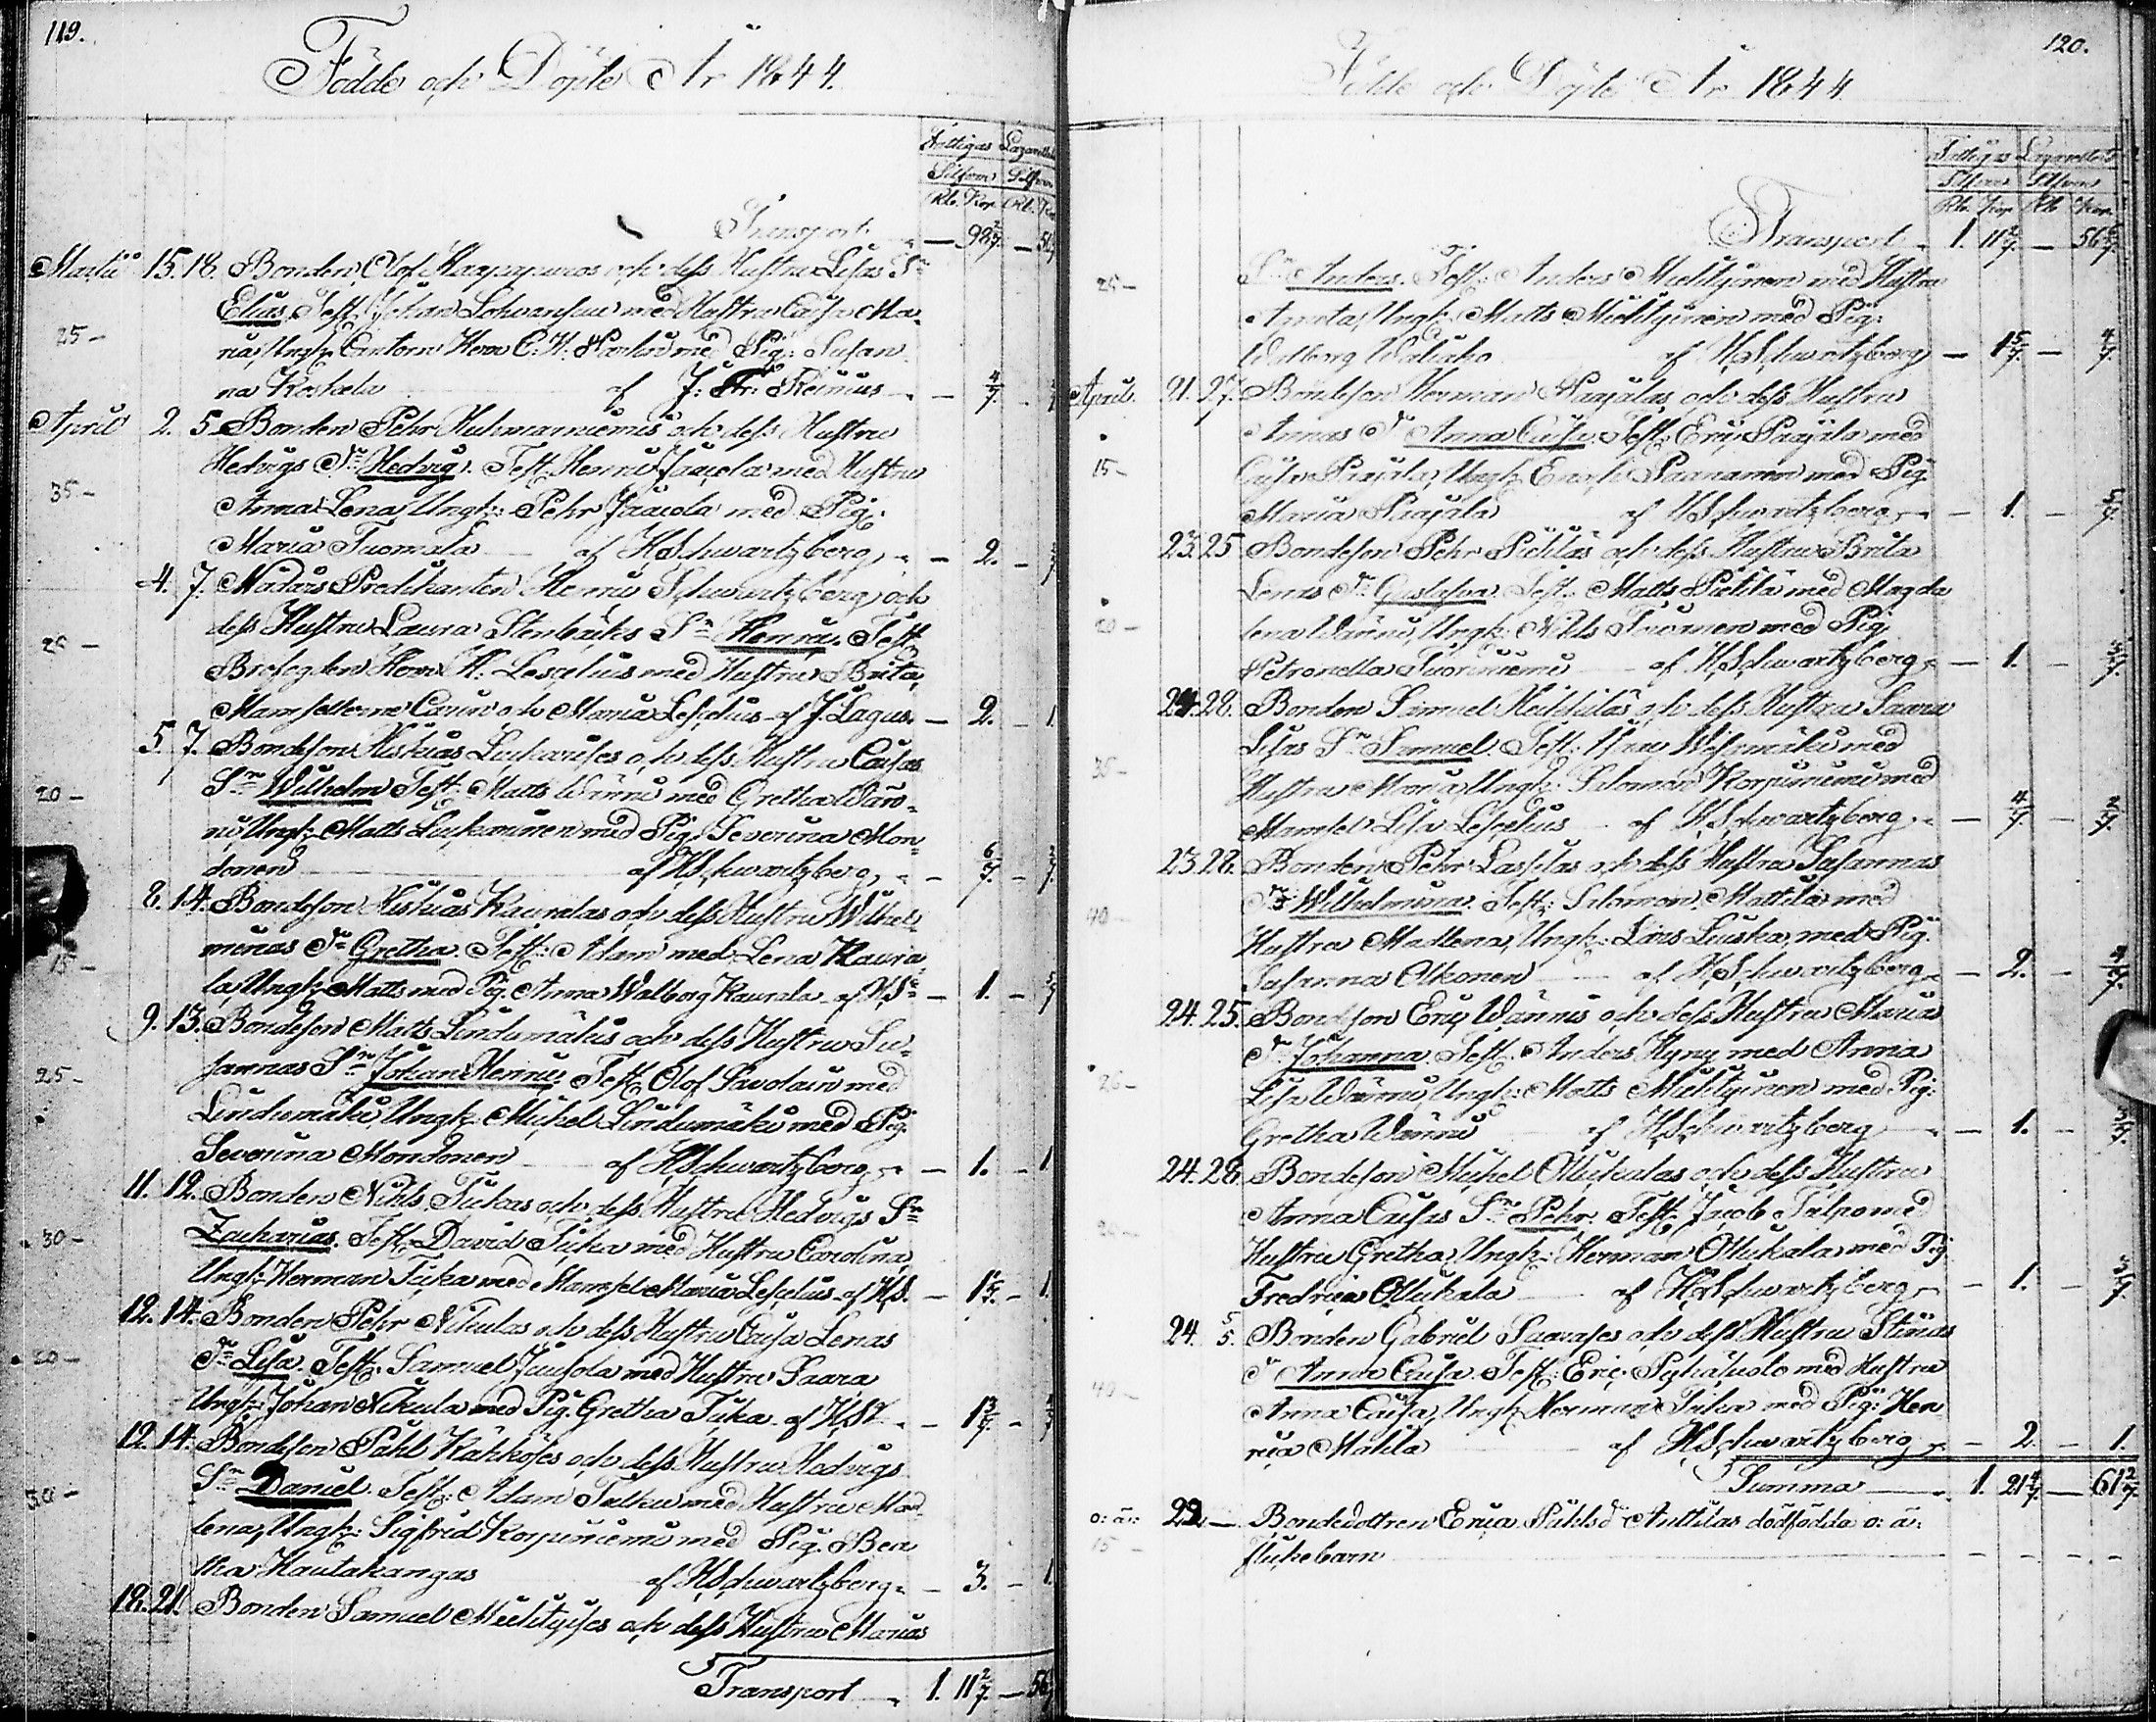 119.
Födde och Döpte År 1844.
Fattigas Lazaretts
Silfver Silfver
Rb. Kop. Rb. Kop.
Transport — 98 2/7 — 50
Martii 15. 18. Bonden Olof och dess Hustru Lisas Sn
Elias. Test: Johan med Hustru Caisa Ma-
25 — ria, Ungk: Cantorn Herr C. H. med Pig: Susan-
na Koskela af J. Fr. Reinius — 4/7
April 2. 5. Bonden Pehr Huhmarniemis och dess Hustru
Hedvigs Dr Hedvig. Test: Henric Jaacola med Hustru
35 — Anna Lena, Ungk: Pehr Jaacola med Pig:
Maria Tuomala af HSchwartzberg — 2.
4. 7. Predikanten Henric Schwartzberg och
dess Hustru Laura Stenbäcks Sn Henric. Test:
25 — Brofogden Herr H. Lescelius med Hustru Brita,
Mamsellerne Carin och Maria Lescelius af J. Lagus. — 2. — 1
5. 7. Bondeson Hiskias och dess Hustru Caisas
Sn Wilhelm Test: Matts Wänni med Gretha Wän-
20 — ni, Ungk: Matts med Pig: Severina Mon-
donen af HSchwartzberg — 6/7
8. 14. Bondeson Hiskias Kauralas och dess Hustru Wilhel-
minas Dr Gretha. Test: Adam med Lena Kaura-
15 — la, Ungk: Matts med Pig. Anna Walborg Kaurala af HS — 1.
9. 13. Bondeson Matts Lindumäkis och dess Hustru Su-
sannas Sn Johan Henric. Test: Olof Savolain med
25 — Lindumäki, Ungk: Michel Lindumäki med Pig:
Severina Mondonen af HSchwartzberg — 1. — 1
11. 12. Bonden Nikls Tickas och dess Hustru Hedvigs Sn
30 — Zacharias. Test: David Ticka med Hustru Carolina,
Ungk: Herman Ticka med Mamsel Maria Lescelius af HS. — 1. — 1.
12. 14. Bonden Pehr Nikulas och dess Hustru Caisa Lenas
20 — Dr Lisa. Test: Samuel med Hustru Saara
Ungk: Johan Nikula med Pig. Gretha Ticka af HS — 1 3/7
12. 14. Bondeson Påhl Kähköses och dess Hustru Hedvigs
30 — Sn Daniel. Test: Adam med Hustru Mad-
lena, Ungk: Sigfrid Korpiniemi med Pig. Bea-
ta Hautakangas af HSchwartzberg — 3. — 1.
18. 21. Bonden Samuel Mielityises och dess Hustru Marias
Transport 1. 11 2/7 — 56
120.
Födde och Döpte År 1844
Fattigas Lazarettets
Silfver Silfver
Rb. Kop. Rb. Kop.
Transport 1. 11 2/7 — 56
25 — Sn Anders. Test: Anders Mielityinen med Hustru
Anneta, Ungk: Matts Mielityinen med Pig:
Walborg af HSchwartzberg — 1 5/7 — 4/7
April. 21. 27. Bondeson Herman Paajalas och dess Hustru
Annas Dr Anna Caisa. Test: Eric Paajala med
15 — Paajala, Ungk: Enoch Paananen med Pig:
Maria Paajala af HSchwartzberg — 1. — 5/7
23. 25 Bondeson Pehr Pietiläs och dess Hustru Brita
20 — Lenas Dr Gustafva. Test: Matts Pietilä med Magda-
lena Wänni, Ungk: Nikls med Pig:
Petronella Tuoriniemi af HSchwartzberg — 1.
24. 28. Bonden Samuel och dess Hustru Saara
35 — Lisas Sn Samuel. Test: Isaac med
Hustru Maria, Ungk: Salomon Korpiniemi med
Mamsel Lisa Lescelius af HSchwartzberg — 4/7 — 2/7
23. 28. Bonden Pehr Lassilas och dess Hustru Susannas
40 — Dr Wilhelmina. Test: Salomon Mattila med
Hustru Madlena, Ungk: Lars med Pig:
Susanna Olkonen af HSchwartzberg — 2. — 4/7
24. 25. Bondeson Eric Wännis och dess Hustru Marias
Dr Johanna. Test: Anders Hyny med Anna
25 — Lisa Wänni, Ungk: Matts Mielityinen med Pig:
Gretha Wänni af HSchwartzberg — 1.
24. 28. Bondeson Michel Ollikalas och dess Hustru
Anna Caisas Sn Pehr. Test: Jacob Tulpo med
20 — Hustru Gretha, Ungk: Herman Ollikala med Pig
Fredrica Ollikala af HSchwartzberg — 1.
24. 5/5. Bonden Gabriel Saarases och dess Hustru Stinas
40 — Dr Anna Caisa. Test: Eric med Hustru
Anna Caisa, Ungk: Herman Ticka med Pig: Hen-
rica Mattila af HSchwartzberg — 2. — 1.
Summa 1. 21 4/7 — 61 2/7
o: ä: 29. — Bondedottren Erica Påhlsdr Anttilas dödfödda o: ä:
15 — flickebarn — — — —